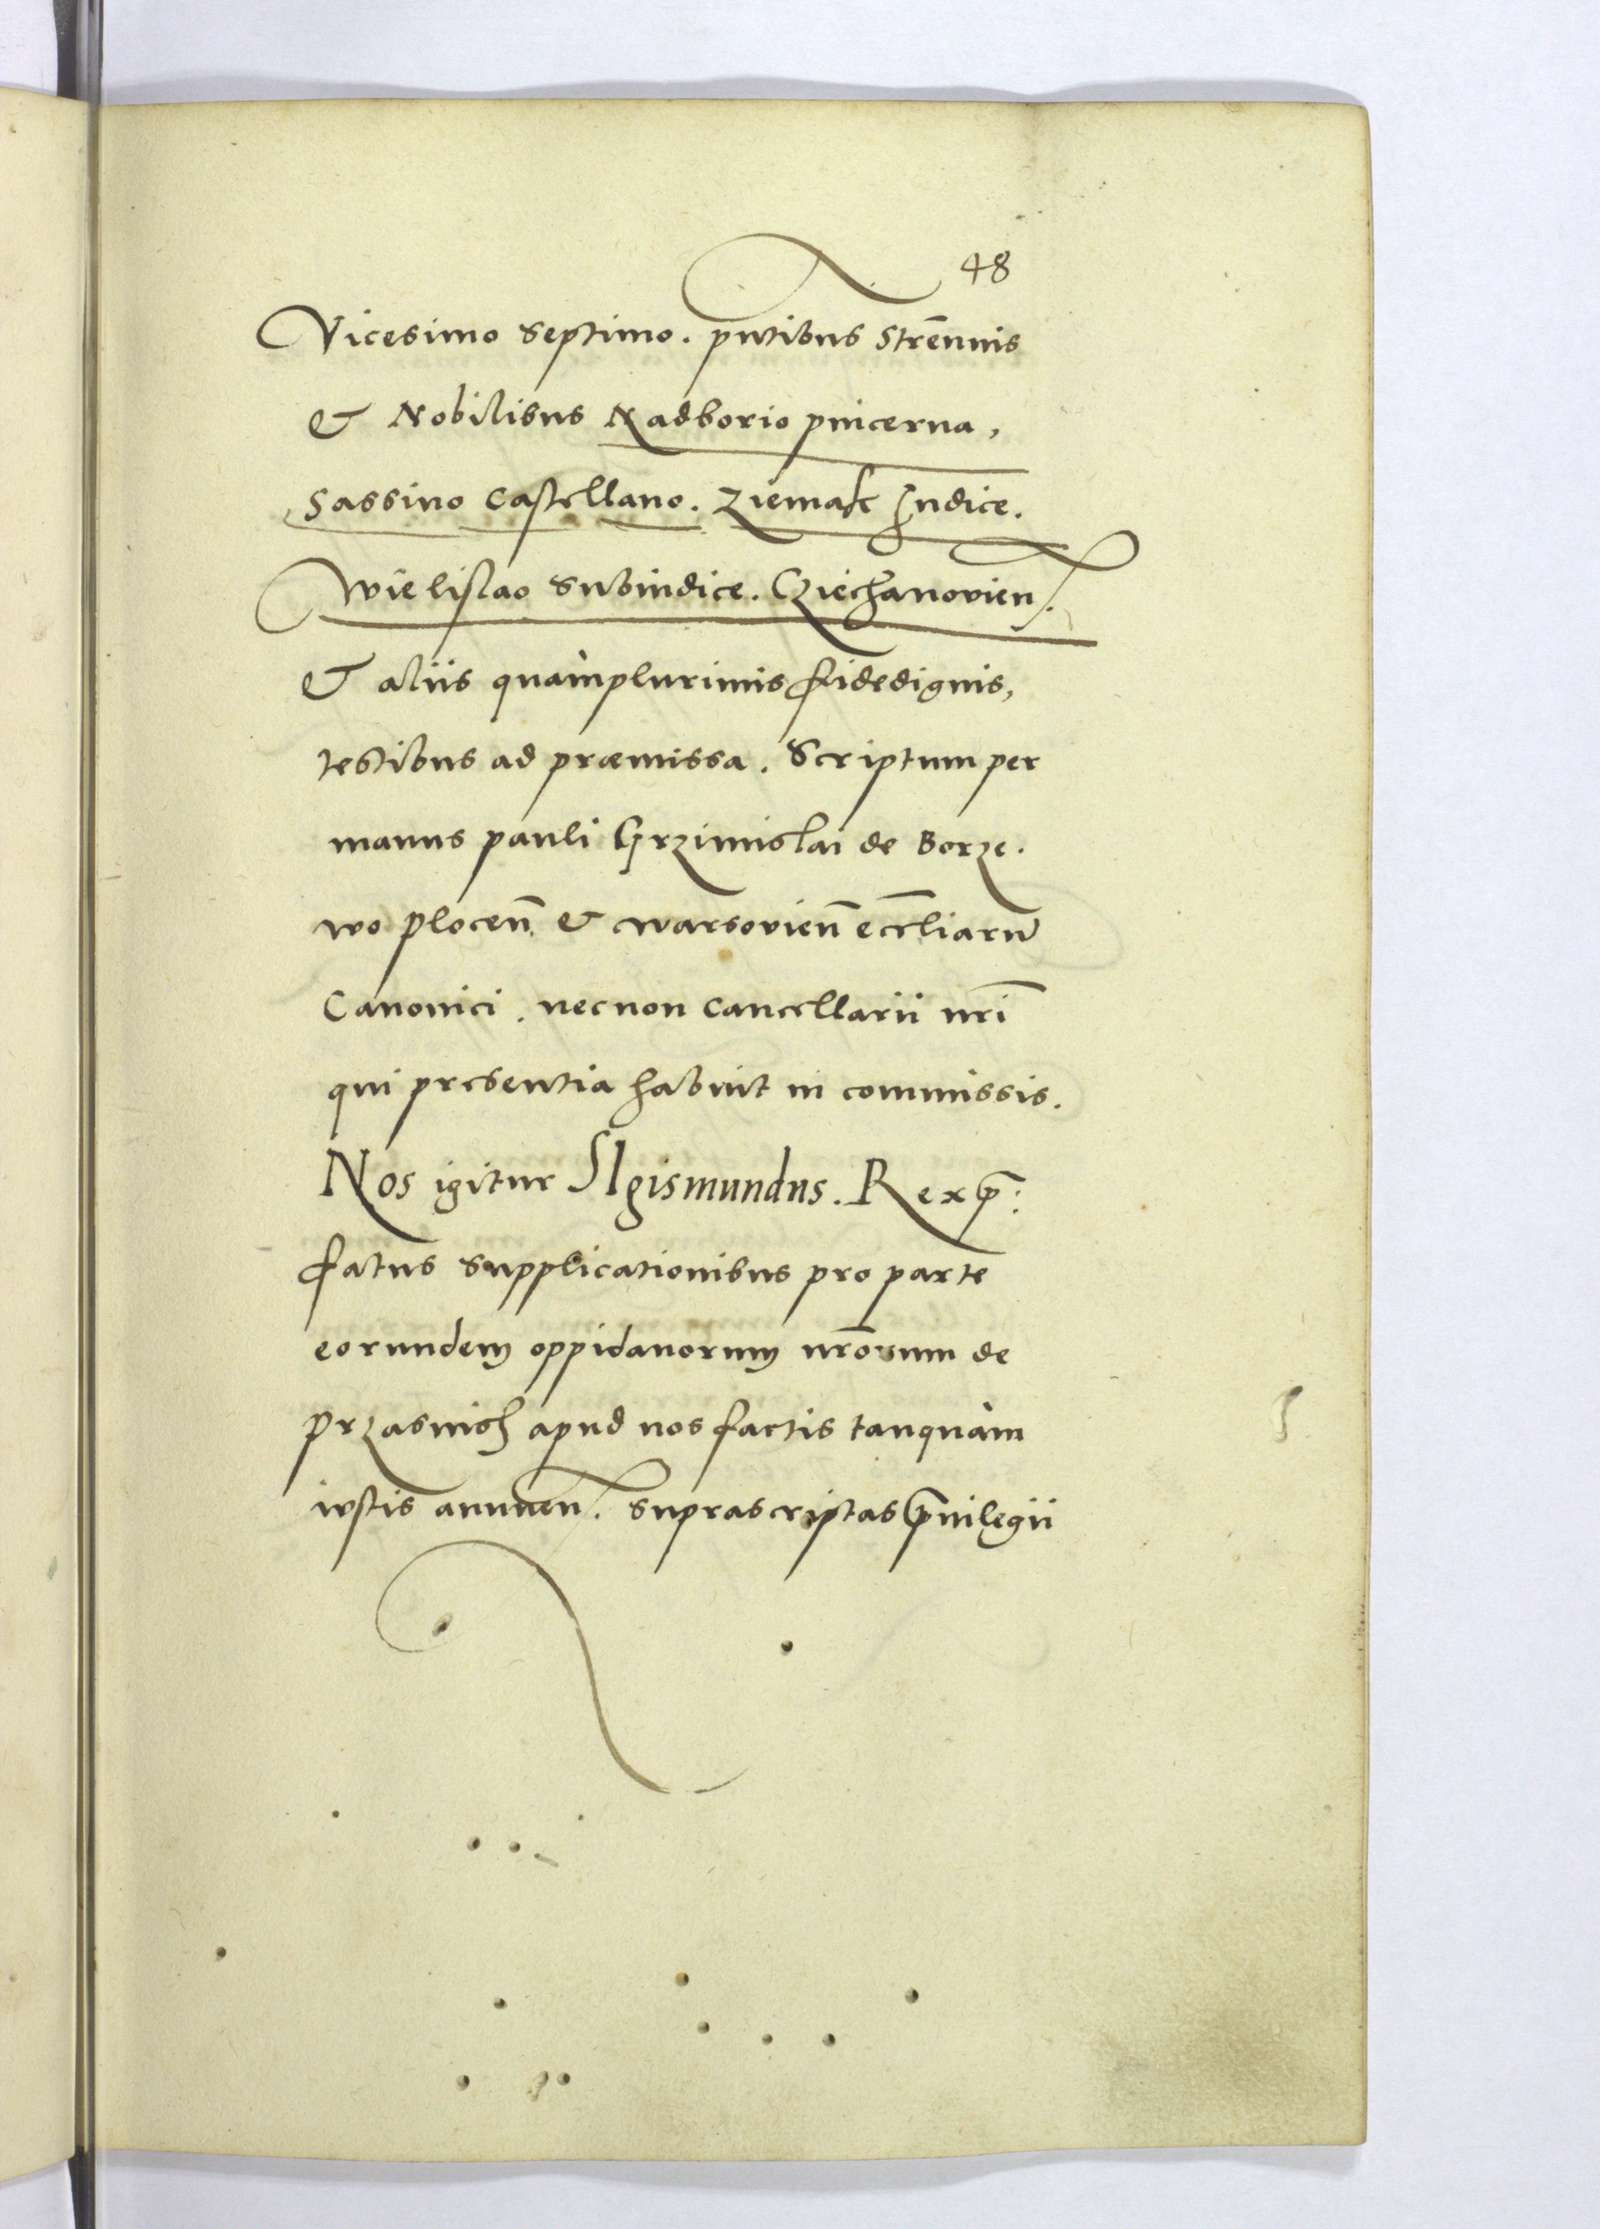 48
Vicesimo septimo. pñtibus Strēnuis
& Nobilibus Nadborio pincerna,
Sassino castellano. Ziemak Iudice.
Wielislao Subiudice. Cziechanovien.
& aliis quàmplurimis fidedignis,
testibus ad præmissa. Scriptum per
manus pauli Grzimislai de Borze.
wo plocen̄ & warsovien̄ eccl̄iarū
Canonici. necnon cancellarii nrī
qui presentia habuit in commissis.
Nos igitur SIgismundus. Rex p̄:
fatus supplicationibus pro parte
eorundem oppidanorum nr̄orum de
Przasnish apud nos factis tanquàm
iustis annuen. suprascriptas p̄uilegii